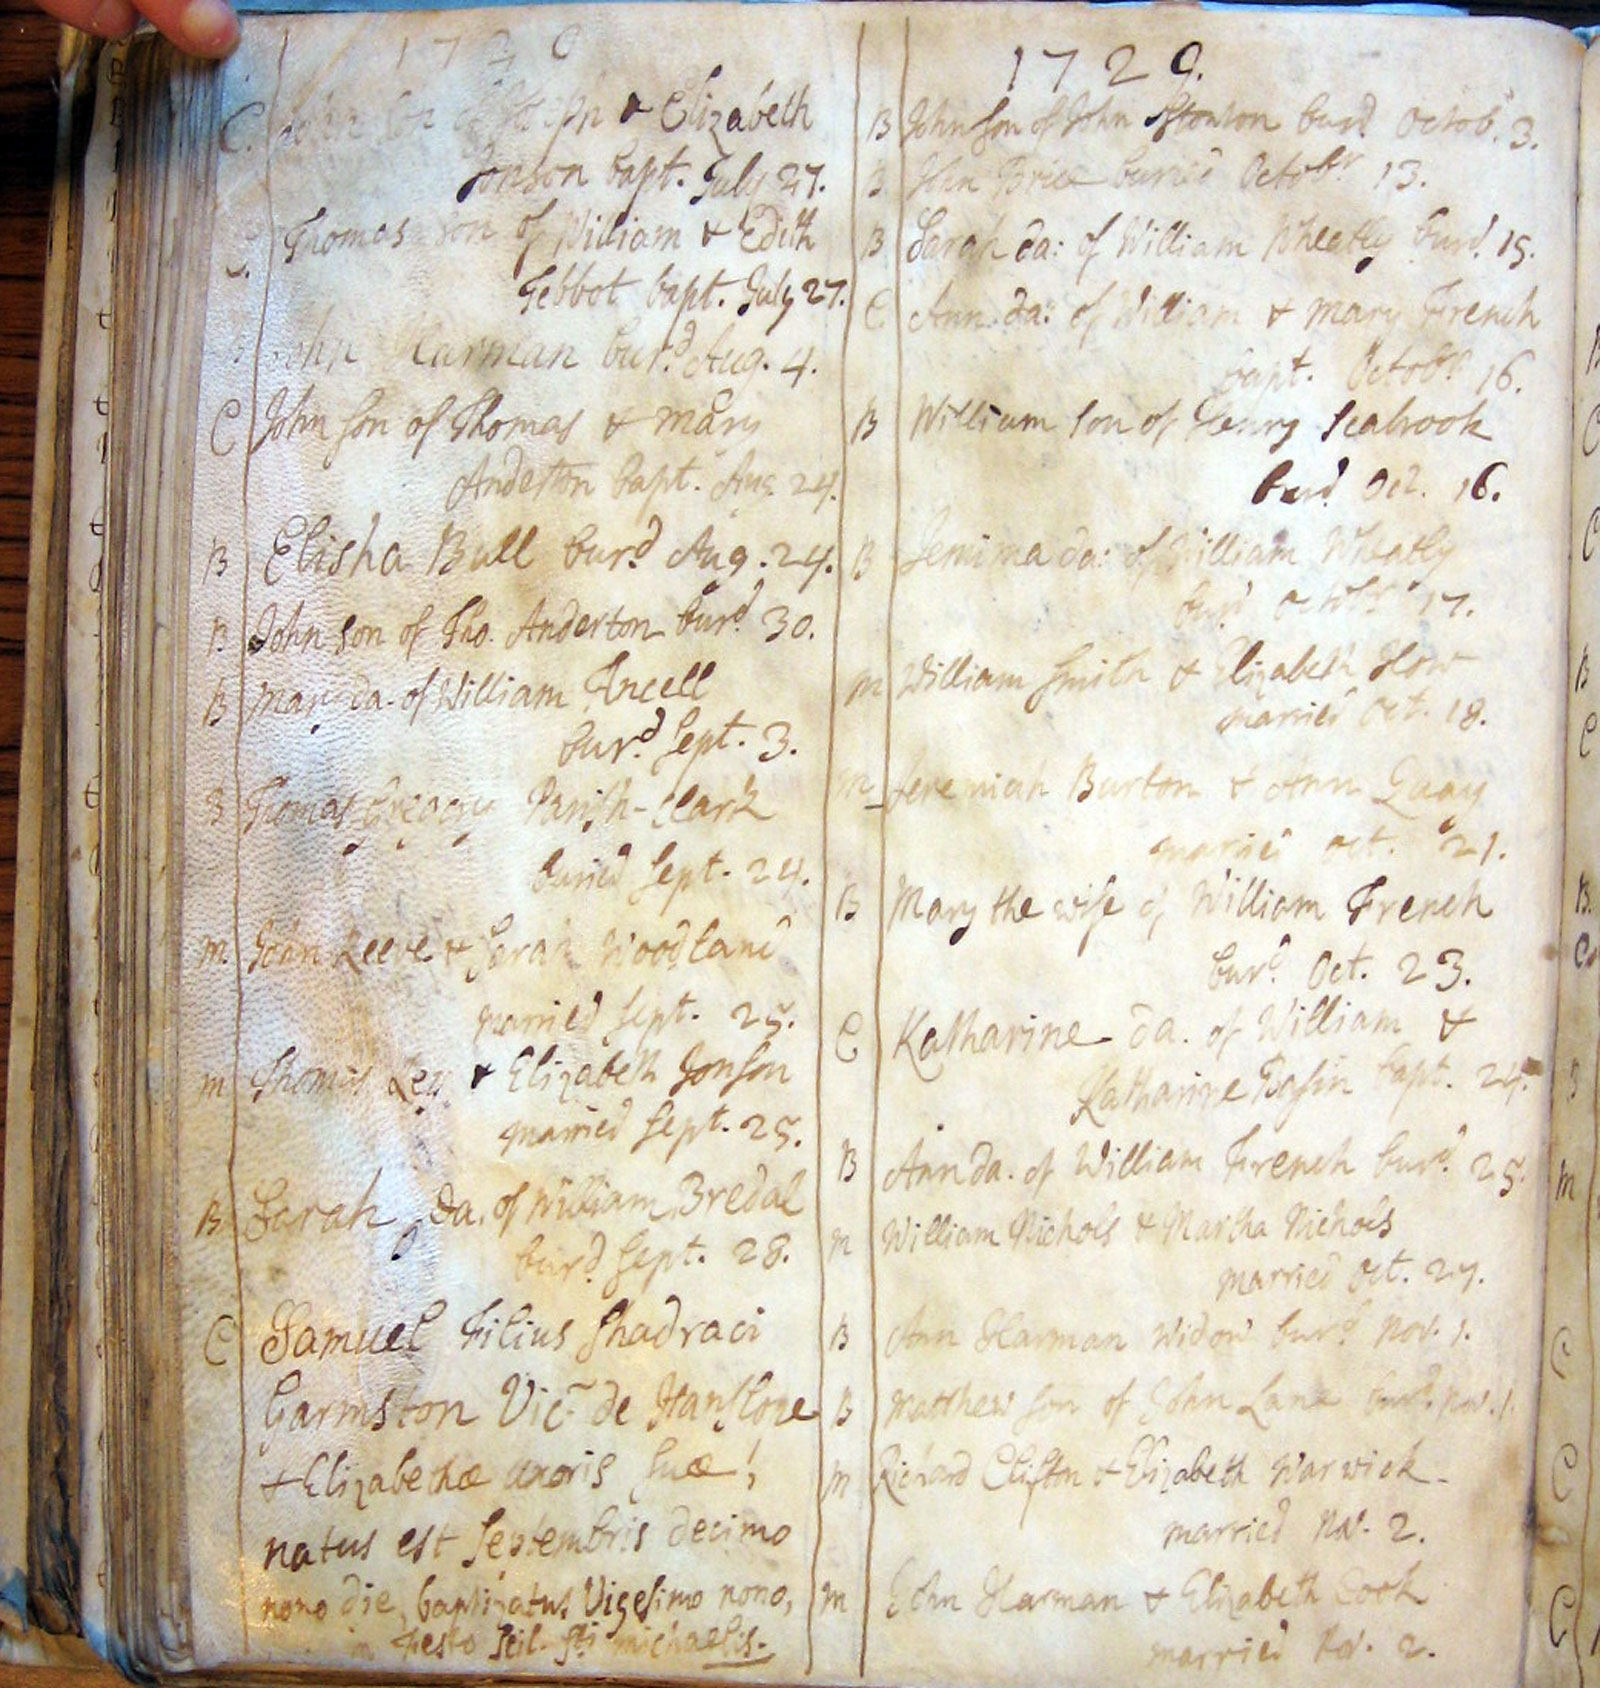 1729
C. John son of Joseph & Elizabeth
Jonson bapt. July 27.
C. Thomas son of William & Edith
Tebbot bapt. July 27.
John Harman bur.d Aug. 4.
C John son of Thomas & mary
Anderton bapt. Aug. 24.
B Elisha Bull bur.d Aug. 24.
B John son of Tho. Anderton bur.d 30.
B mary da. of William Ancell
bur.d Sept. 3.
B Thomas Gregory Parish-Clark
buried Sept. 24.
m. John Reeve & Sarah Woodland
married Sept. 25.
m Thomas Ley & Elizabeth Jonson
married Sept. 25.
B Sarah da. of William Bredal
bur.d Sept. 28.
C Samuel Filius Shadraci
Garmston Vic. de Hanslope
& Elizabethæ uxoris suæ,
natus est Septembris decimo
nono die, baptizatus Vigesimo nono,
in Festo Scil. Sti michaelis.
1729.
B John son of John bur.d Octob. 3.
B John Brice buried Octobr. 13.
B Sarah da: of William Wheatly bur.d 15.
C Ann da: of William & mary French
bapt. Octobr. 16.
B William son of Henry Seabrook
bur.d Oct. 16.
B Jemima da: of William Wheatly
bur.d Octobr. 17.
m William Smith & Elizabeth How
married Oct. 18.
m Jeremiah Burton & Ann
married Oct. 21.
B Mary the wife of William French
bur.d Oct. 23.
C Katharine da. of William &
Katharine Basin bapt. 24.
B Ann da. of William French bur.d 25.
m William Nichols & Martha Nichols
married Oct. 27.
B Ann Harman Widow bur.d Nov. 1.
B Matthew son of John Lane bur.d Nov. 1.
m Richard Clifton & Elizabeth Warwick
married Nov. 2.
m John Harman & Elizabeth Cook
married Nov. 2.